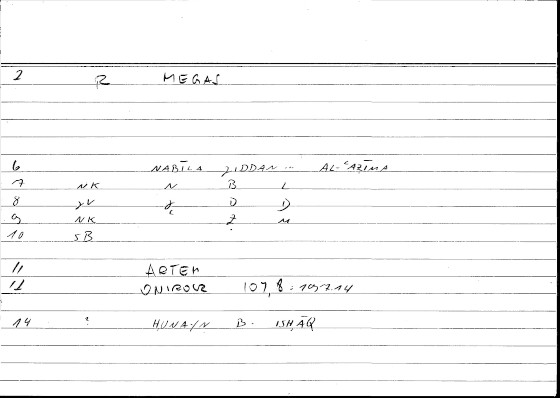 2 R MEGAS
6 NABĪLA ǧIDDAN... AL-ʿAẒĪMA
7 NK N B L
8 ǧV ǧ D D
9 NK Ẓ M
10 SB
11 ARTEM
12 ONIROCR 107,8
14 ? ḤUNAYN B. ISḤĀQ